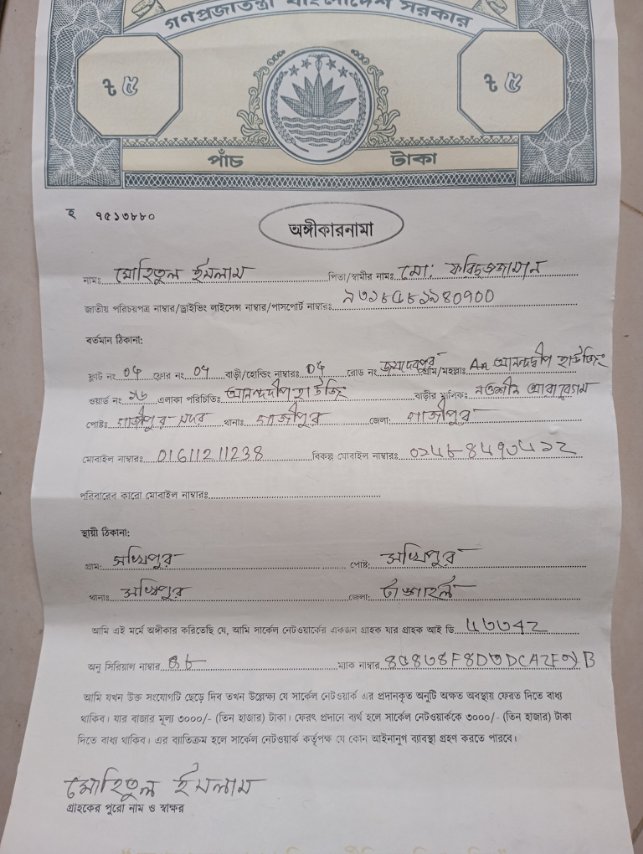 গণপ্রজাতন্ত্রী বাংলাদেশ সরকার
৳ ৫ ৳ ৫
পাঁচ টাকা
হ ৭৫১৩৮৮০
অঙ্গীকারনামা
নামঃ মোহিতুল ইসলাম পিতা/স্বামীর নামঃ মো: ফরিদুজ্জামান
জাতীয় পরিচয়পত্র নাম্বার/ড্রাইভিং লাইসেন্স নাম্বার/পাসপোর্ট নাম্বারঃ
বর্তমান ঠিকানা:
ফ্লাট নং ফ্লোর নং বাড়ী/হোল্ডিং নাম্বারঃ রোড নং জয়দেবপুর গ্রাম/মহল্লাঃ আনন্দদ্বীপ হাউজিং
ওয়ার্ড নং এলাকা পরিচিতিঃ আনন্দদ্বীপ হাউজিং বাড়ীর মালিকঃ নওশীন
পোষ্টঃ গাজীপুর সদর থানাঃ গাজীপুর জেলা: গাজীপুর
মোবাইল নাম্বারঃ 01611211238 বিকল্প মোবাইল নাম্বারঃ
পরিবারের কারো মোবাইল নাম্বারঃ
স্থায়ী ঠিকানা:
গ্রাম: সখিপুর পোষ্ট: সখিপুর
থানাঃ সখিপুর জেলা: টাঙ্গাইল
আমি এই মর্মে অঙ্গীকার করিতেছি যে, আমি সার্কেল নেটওয়ার্কের একজন গ্রাহক যার গ্রাহক আই ডি
অনু সিরিয়াল নাম্বার ম্যাক নাম্বার
আমি যখন উক্ত সংযোগটি ছেড়ে দিব তখন উল্লেক্ষ্য যে সার্কেল নেটওয়ার্ক এর প্রদানকৃত অনুটি অক্ষত অবস্থায় ফেরত দিতে বাধ্য
থাকিব। যার বাজার মূল্য ৩০০০/- (তিন হাজার) টাকা। ফেরৎ প্রদানে ব্যর্থ হলে সার্কেল নেটওয়ার্ককে ৩০০০/- (তিন হাজার) টাকা
দিতে বাধ্য থাকিব। এর ব্যতিক্রম হলে সার্কেল নেটওয়ার্ক কর্তৃপক্ষ যে কোন আইনানুগ ব্যবস্থা গ্রহণ করতে পারবে।
মোহিতুল ইসলাম
গ্রাহকের পুরো নাম ও স্বাক্ষর